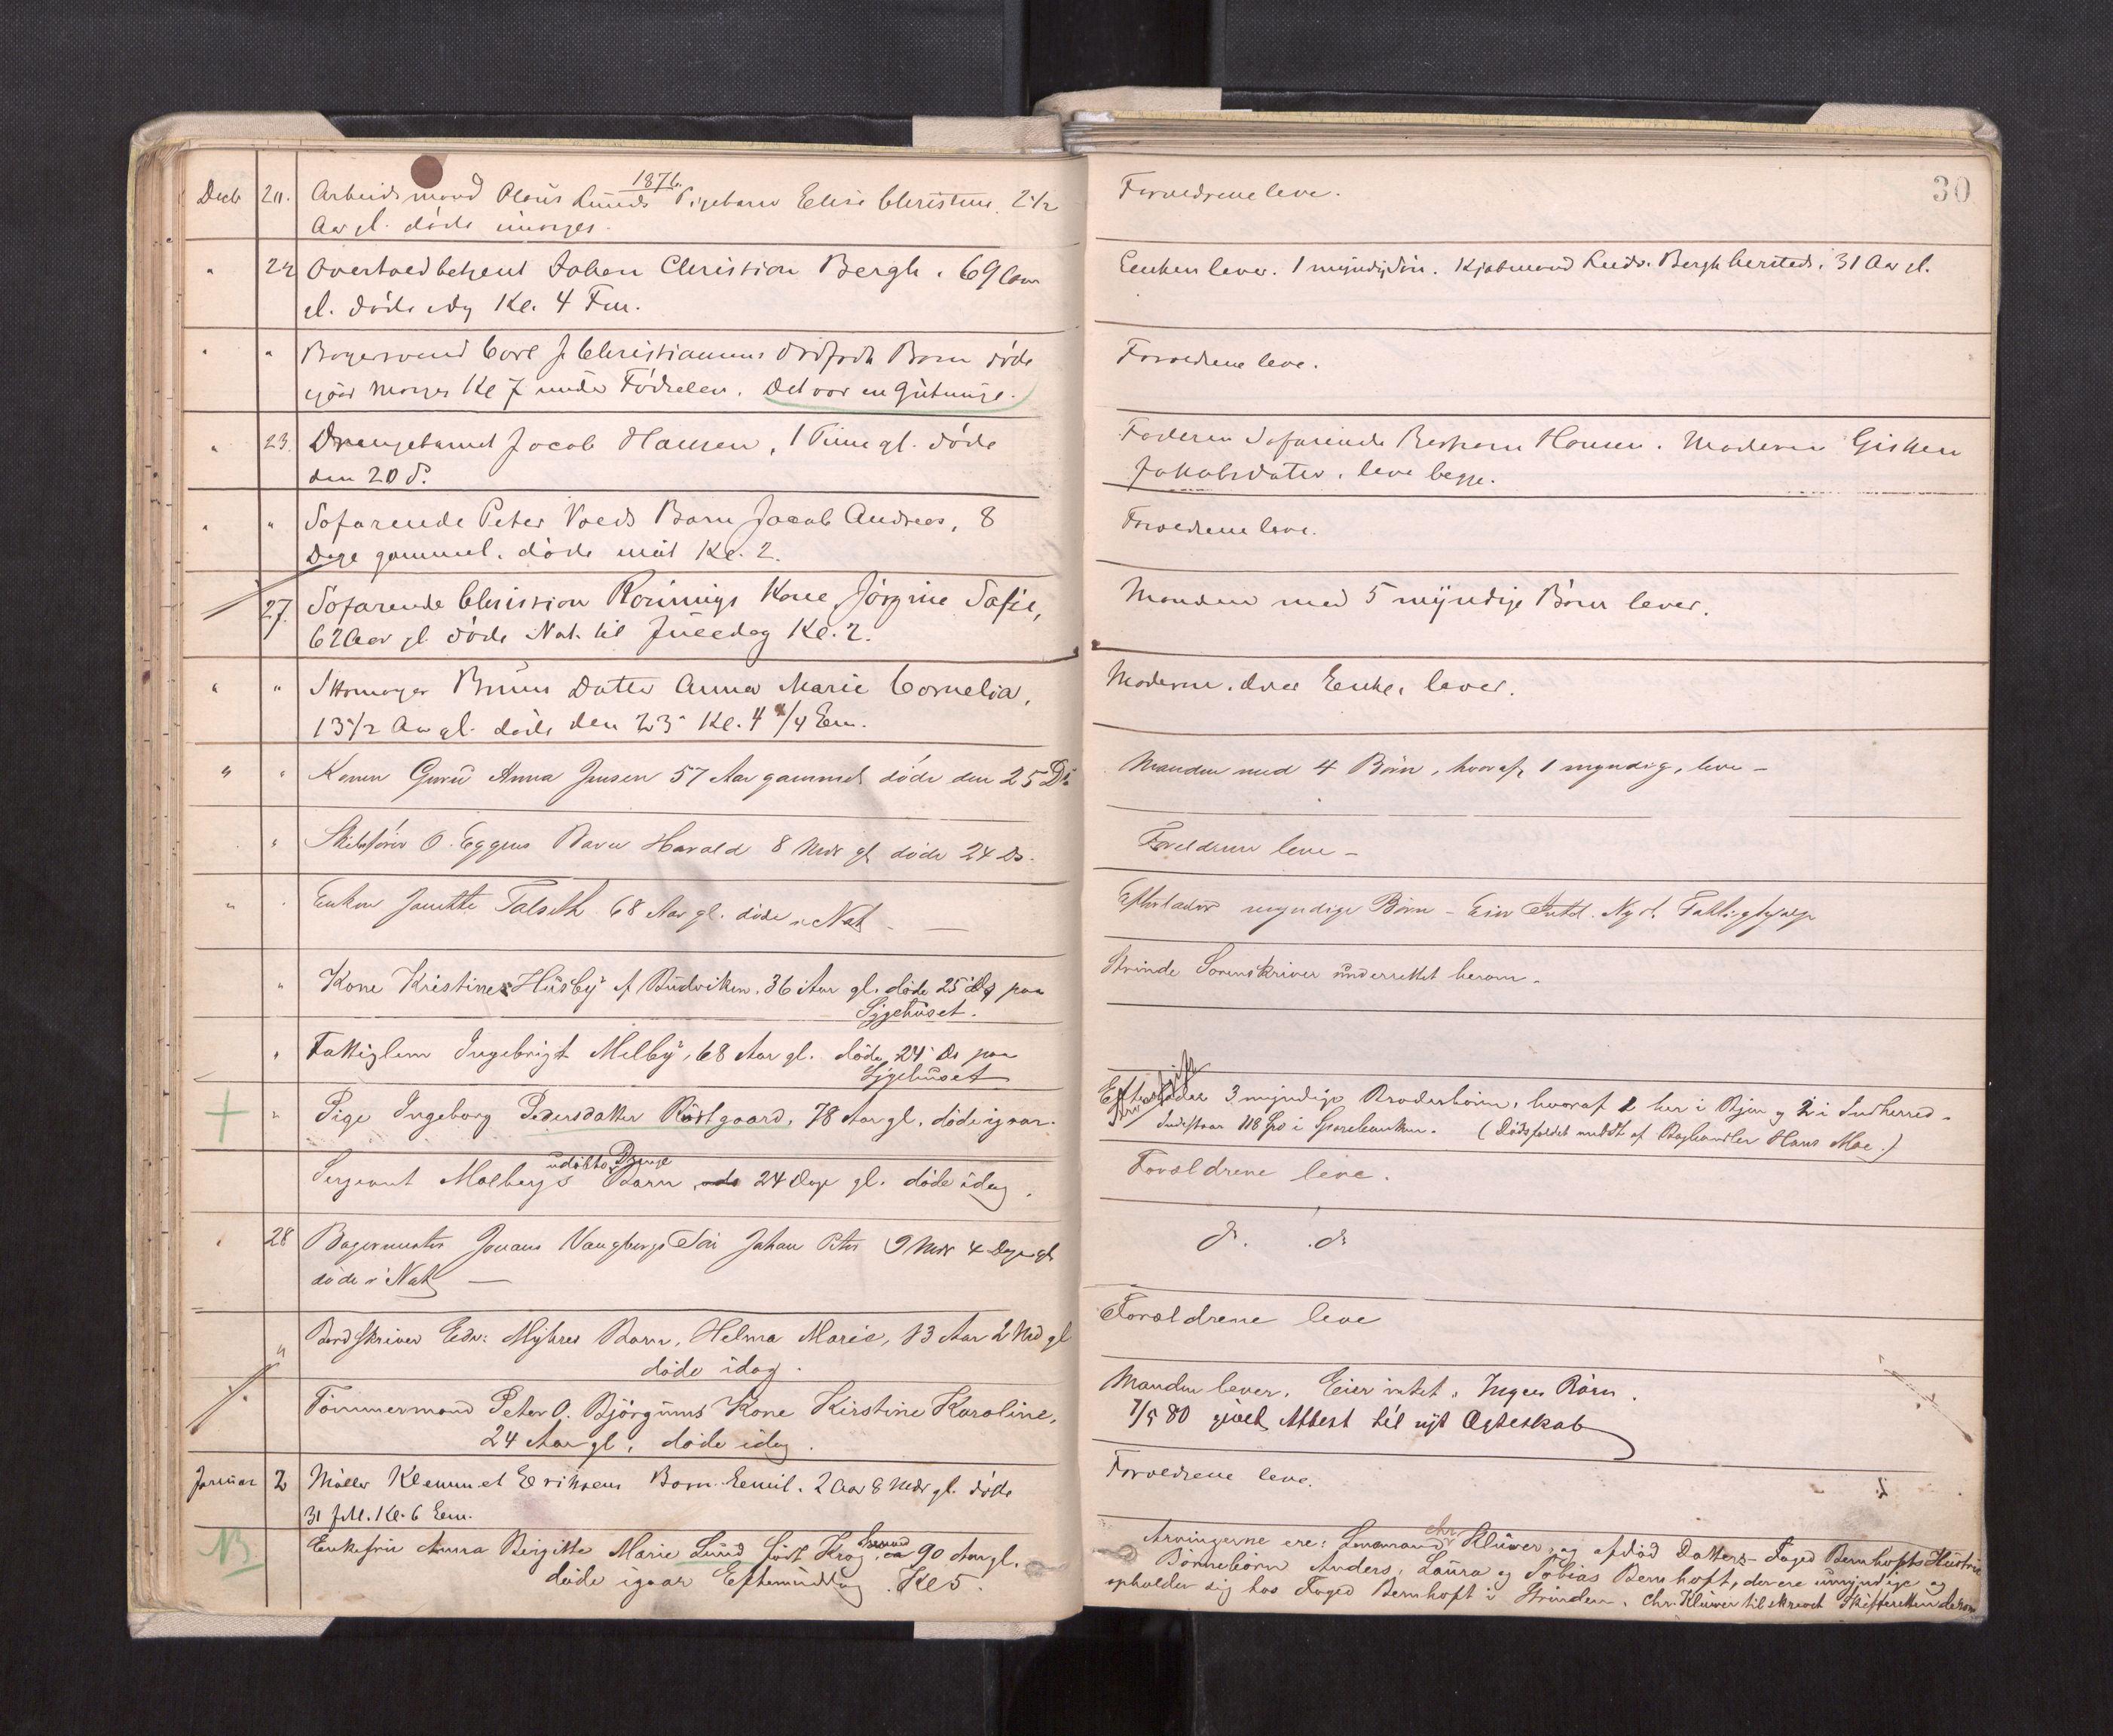 1876.
Decb 20. Arbeidsmand Olaus Lunds Pigebarn Elise Christine, 2 1/2
Aar gl. døde imorges.
Forældrene leve.
30
" 22 Overtoldbetjent Johan Christian Bergh, 69 Aar
gl. døde idag Kl. 4 Fm.
Enken lever. 1 myndig Søn. Kjøbmand Ludv. Bergh hersteds, 31 Aar gl.
" " Bagersvend Carl J. Christiansens dødfødte Barn døde
igaar Morges Kl 7 under Fødselen. Det var en Gutunge.
Forældrene leve.
" 23. Drengebarnet Jacob Hansen, 1 Time gl. døde
den 20 d.
Faderen Søfarende Hansen. Moderen Gisken
Jakobsdatter, leve begge.
" " Søfarende Peter Voeds Barn Jacob Andreas, 8
Dage gammel, døde inat Kl. 2.
Forældrene leve.
27. Søfarende Christian Rønnings Kone Jørgine Sofie,
62 Aar gl døde Nat til Juledag Kl. 2.
Manden med 5 myndige Børn lever.
" " Skomager Bruns Datter Anna Marie Cornelia,
13 1/2 Aar gl. døde den 23 Kl. 4 /4 Em.
Moderen, der er Enke, lever.
" " Konen Guru Anna Jensen 57 Aar gammel døde den 25 Ds
Manden med 4 Børn, hvoraf 1 myndig, leve -
" Skibsfører O. Eggens Barn Harald 8 Mdr gl døde 24 Ds.
Forældrene leve -
" " Enken Janette Talseth 68 Aar gl. døde i Nat. -
Efterlader myndige Børn - Eier Intet. Nyd. Fattighjælp
" Kone Kristine Husby af Budviken. 36 Aar gl. døde 25 ds paa
Sygehuset.
Strinde Sorenskriver underrettet herom.
" Fattiglem Ingebrigt Melby, 68 Aar gl. døde 24 Ds paa
Sygehuset
" Pige Ingeborg Pedersdatter Røstgaard, 78 Aar gl. døde igaar.
Efterlader 3 myndige Broderbørn, hvoraf 1 her i Byen og 2 i Indherred -
Indestaar 118 Spd i Sparebanken. (Dødsfaldet meldt af Boghandler Hans Moe.)
Sergeant Molbergs udøbte Drenge Barn 24 Dage gl. døde idag.
Forældrene leve.
" 28 Bagermester Johans Vangbergs Søn Johan Peter 9 Mdr 4 Dage gl
døde i Nat -
do. do
" Bordskriver Edv: Myhres Barn, Helma Marie, 13 Aar 2 Md gl
døde idag.
Forældrene leve
Tømmermand Peter O. Bjørgums Kone Kirstine Karoline,
24 Aar gl, døde idag.
Manden lever. Eier intet. Ingen Børn.
7/5 80 givet Attest til nyt Ægteskab
Januar 2 Møller Klemmet Eriksens Barn Emil. 2 Aar 8 Mdr gl. døde
31 f.M. Kl. 6 Em.
Forældrene leve.
NB Enkefru Anna Birgitte Marie Lund født Krog, 90 Aar gl.
døde igaar Eftermiddag Kl 5.
Arvingerne ere: Lensmand Chr. Klüwer, og afdød Datters Foged Bernhofts Hustrus
Børnebørn Anders, Laura og Tobias Bernhoft, der ere umyndige og
opholder sig hos Foged Bernhoft i Strinden. Chr. Klüwer tilskrevet Skifteretten derom